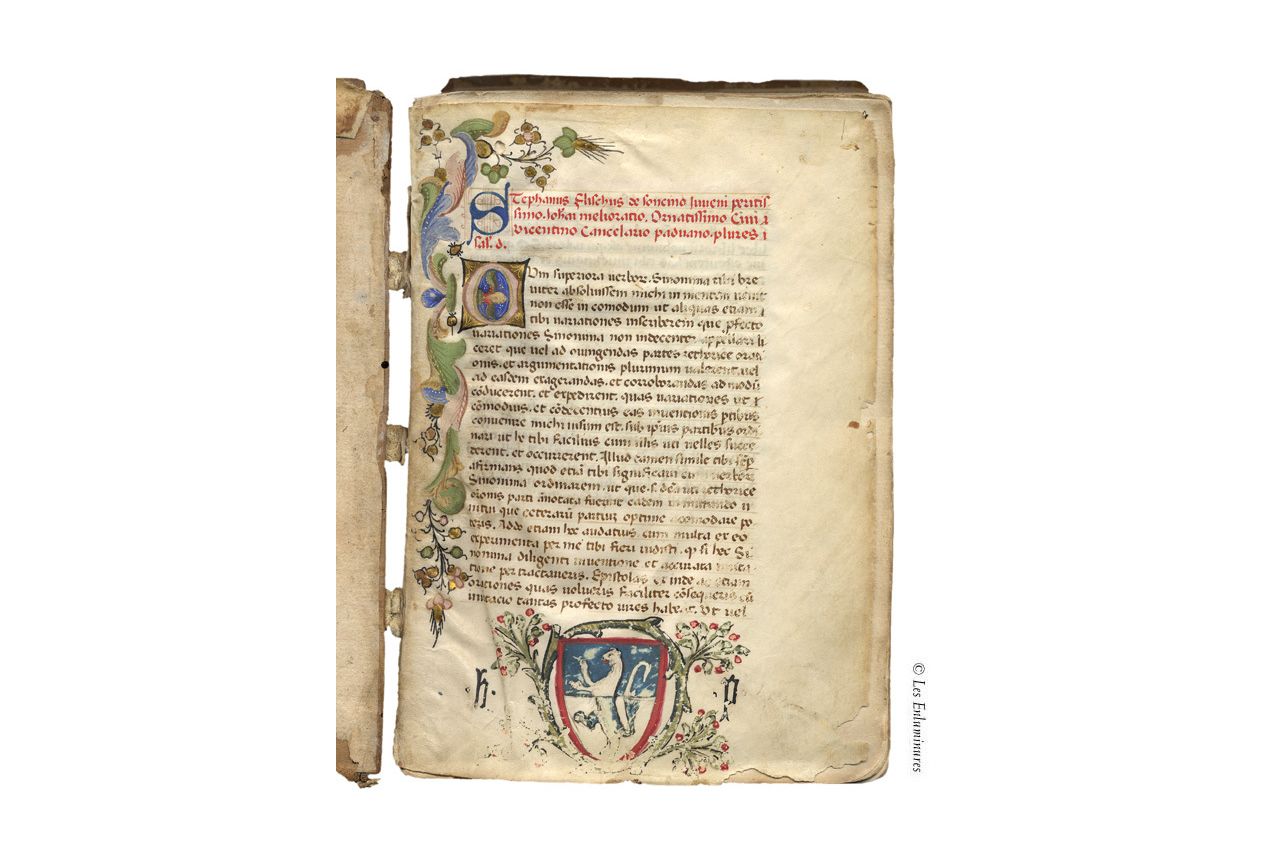 STephanus Fliscus de soncino Iuveni peritis
simo. Iohāi melioratio. Ornatissimo Civi
vicentino Cancelario paduano. plures
sal. d.
CUm superiora verborꝝ Sinonima tibi bre
viter absoluissem michi in mentem venit
non esse in comodum ut aliquas etiam
tibi variationes inscriberem que ꝓfecto
variationes Sinonima non indecenter appellari li
ceret que vel ad iungendas partes rethorice
onis. et argumentationis plurimum valerent. vel
ad easdem exagerandas. et corroborandas ad modū
cōducerent. et expedirent. quas variationes ut
cōmodius. et cōdecentius eas inventionis ꝑtibus
convenire michi visum est. sub ipsius partibus ordi
navi ut he tibi facilius cum illis uti velles succe
rerent. et occurrerent. Illud tamen simile tibi
afirmans quod etiā tibi significavi cum verborꝝ
Sinonima ordinarem. ut que rethorice
oronis parti ānotata fuerint eadem in
nitui que ceterarū partiuȝ optime acomodare po
teris. Addo etiam hoc audatius cum multa ex eo
experimenta per me tibi fieri vidisti. ꝙ si hec Si
nonima diligenti inventione et accurata imita
tione per tractaveris. Epistolas et inde ac etiam
orationes quas volueris faciliter cōsequeris cū
imitacio tantas profecto vires habeat. Ut vel
h.
© Les Enluminures